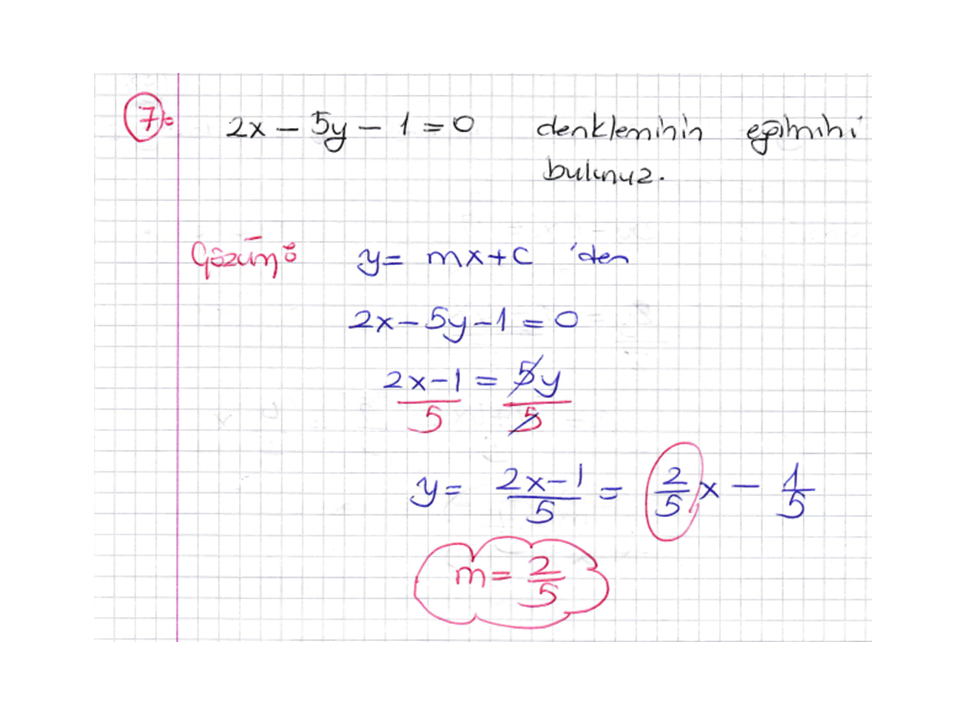 7)- 2x - 5y - 1 = 0 denkleminin eğimini
bulunuz.
Çözüm: y = mx + c 'den
2x - 5y - 1 = 0
2x - 1 / 5 = 5y / 5
y = 2x - 1 / 5 = 2/5 x - 1/5
m = 2/5